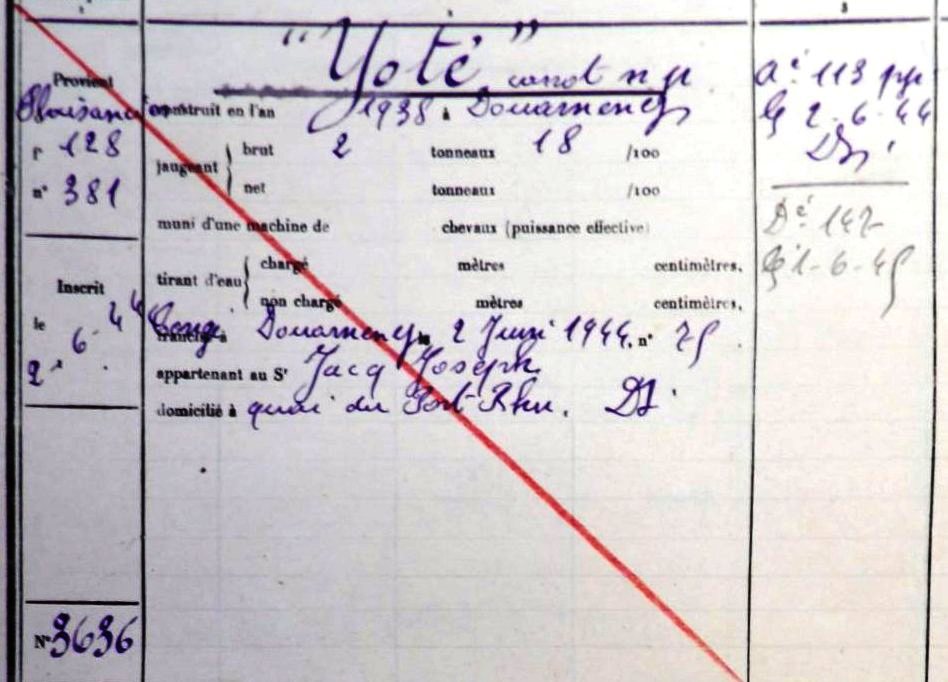 Provient
Plaisance
f° 128
n° 381
Inscrit
le
2 - 6 - 44
N° 3636
"Yoté" canot n p
construit en l'an 1938 à Douarnenez
jaugeant { brut 2 tonneaux 18 /100
net tonneaux /100
muni d'une machine de chevaux (puissance effective)
tirant d'eau { chargé mètres centimètres.
non chargé mètres centimètres.
Congé Douarnenez le 2 Juin 1944. n° 75
appartenant au Sr Jacq Joseph
domicilié à quai du Port Rhu. DZ
3
113
2-6-44
DZ
147
1-6-45